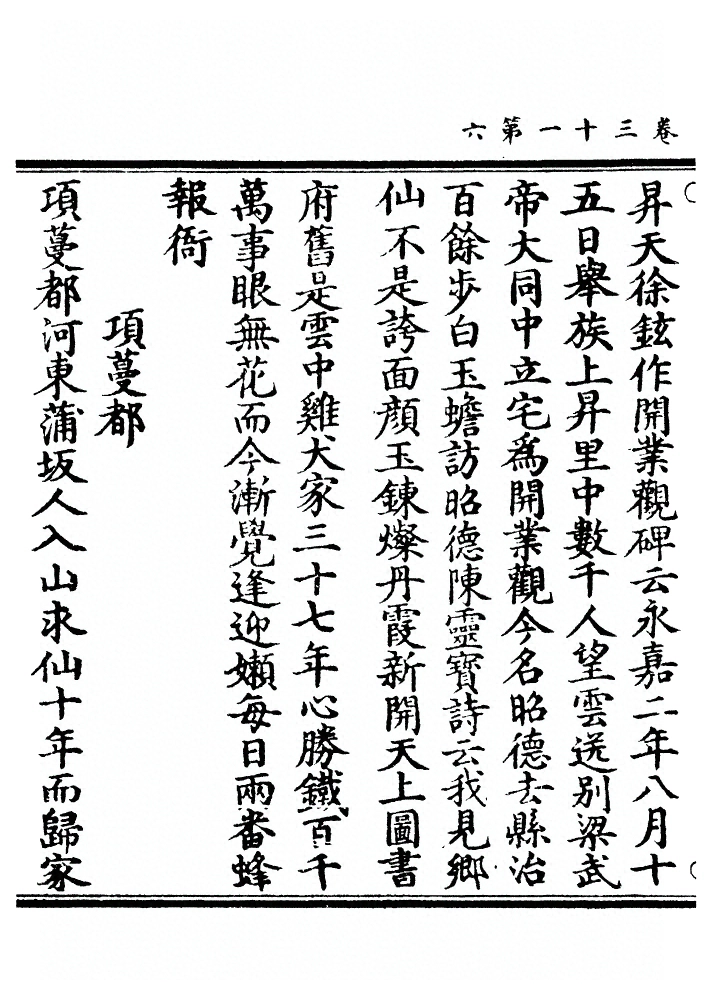 卷三十一第六
昇天徐鉉作開業觀碑云永嘉二年八月十
五日舉族上昇里中數千人望雲送別梁武
帝大同中立宅為開業觀今名昭德去縣治
百餘步白玉蟾訪昭德陳靈寶詩云我見鄉
仙不是誇面顏玉鍊燦丹霞新開天上圖書
府舊是雲中雞犬家三十七年心勝鐵百千
萬事眼無花而今漸覺逢迎嬾每日兩番蜂
報衙
項蔓都
項蔓都河東蒲坂人入山求仙十年而歸家